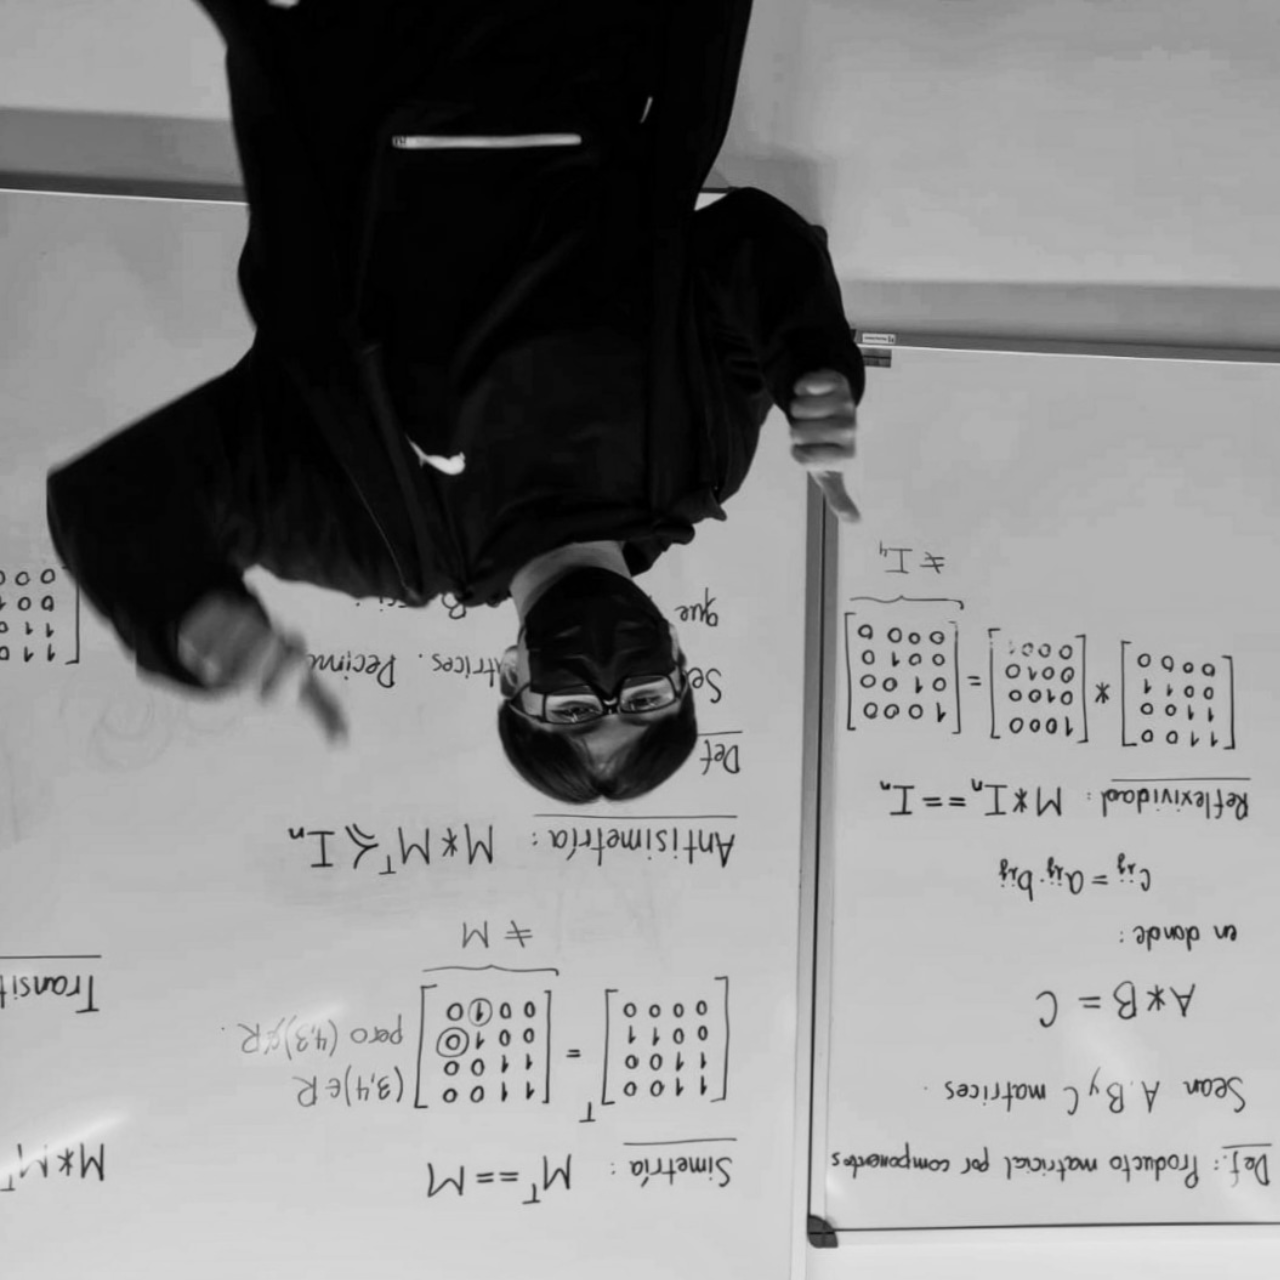 Def.: Producto matricial por componentes
Sean A, B y C matrices.
A * B = C
en donde:
cᵢⱼ = aᵢⱼ · bᵢⱼ
Reflexividad: M * Iₙ == Iₙ
[1 1 0 0] [1 0 0 0] [1 0 0 0]
[1 1 0 0] [0 1 0 0] [0 1 0 0]
[0 0 1 1] * [0 0 1 0] = [0 0 1 0]
[0 0 0 0] [0 0 0 1] [0 0 0 0]
≠ I₄
Simetría: Mᵀ == M
[1 1 0 0]ᵀ [1 1 0 0] (3,4)∈R
[1 1 0 0] = [1 1 0 0]
[0 0 1 1] [0 0 1 0] pero (4,3)∉R.
[0 0 0 0] [0 0 1 0]
≠ M
Antisimetría: M * Mᵀ ≼ Iₙ
Def
Se trices. Decimo
que B
M * Mᵀ
Transit
[1 1 0
1 1 0
0 0 1
0 0 0